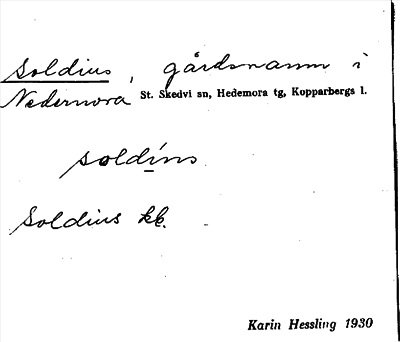 Soldius, gårdsnamn i
Nedernora St. Skedvi sn, Hedemora tg, Kopparbergs l.
soldíns
Soldius kk.
Karin Hessling 1930